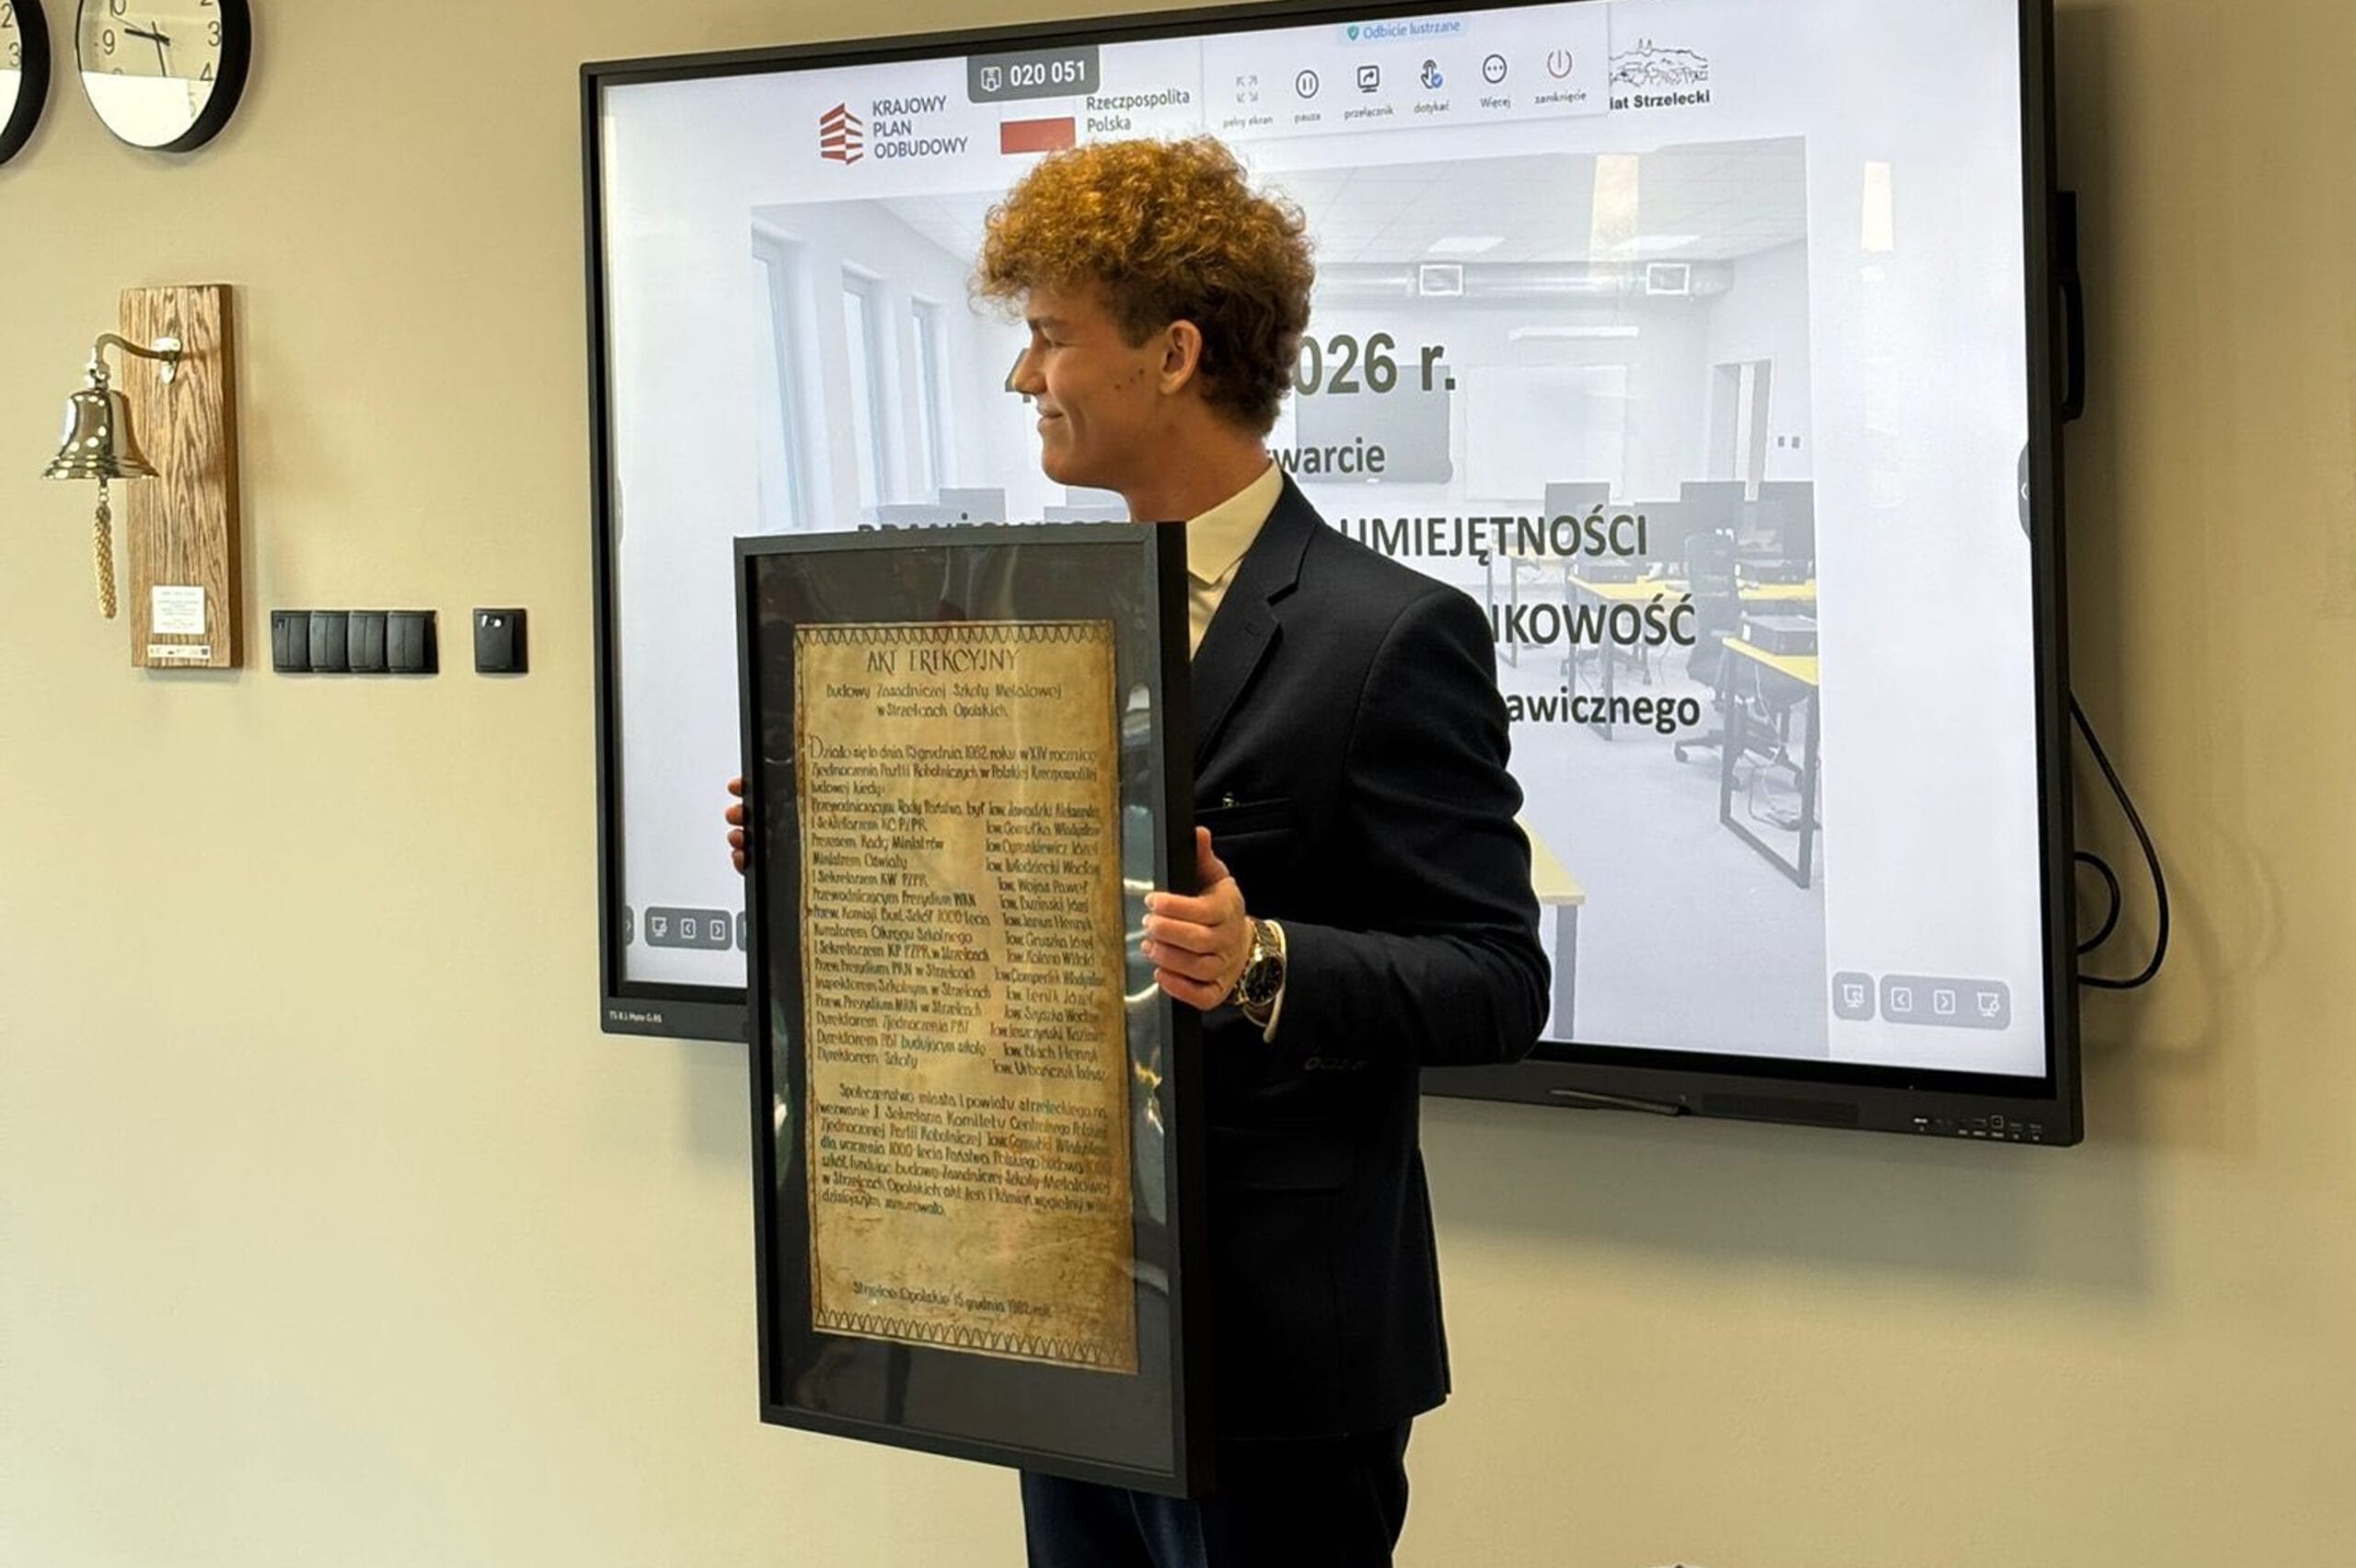 2
3
10
2
9
3
4
5
020 051
Odbicie lustrzane
pełny ekran
pauza
przełącznik
dotykać
Więcej
zamknięcie
KRAJOWY
PLAN
ODBUDOWY
Rzeczpospolita
Polska
iat Strzelecki
026 r.
warcie
UMIEJĘTNOŚCI
IKOWOŚĆ
awicznego
AKT EREKCYJNY
Budowy Zasadniczej Szkoły Metalowej
w Strzelcach Opolskich
Działo się to dnia 15 grudnia 1962 roku w XIV rocznicę
Zjednoczenia Partii Robotniczych w Polskiej Rzeczpospolitej
ludowej kiedy:
Przewodniczącym Rady Państwa był Tow. Zawadzki Aleksander
I Sekretarzem KC PZPR Tow. Gomułka Władysław
Prezesem Rady Ministrów Tow. Cyrankiewicz Józef
Ministrem Oświaty Tow. Tułodziecki Wacław
I Sekretarzem KW PZPR Tow. Wojas Paweł
Przewodniczącym Prezydium WRN Tow. Buziński Józef
Przew. Komisji Bud. Szkół 1000 lecia Tow. Janus Henryk
Kuratorem Okręgu Szkolnego Tow. Gruszka Józef
I Sekretarzem KP PZPR w Strzelcach Tow. Kolano Witold
Przew. Prezydium PRN w Strzelcach Tow. Władysław
Inspektorem Szkolnym w Strzelcach Tow. Lenik Józef
Przew. Prezydium MRN w Strzelcach Tow. Wacław
Dyrektorem Zjednoczenia PBT Tow. Kazimierz
Dyrektorem PBT budującym szkołę Tow. Blach Henryk
Dyrektorem Szkoły Tow. Urbańczyk
Społeczeństwo miasta i powiatu strzeleckiego na
wezwanie I Sekretarza Komitetu Centralnego Polskiej
Zjednoczonej Partii Robotniczej Tow. Gomułki Władysława
dla uczczenia 1000 lecia Państwa Polskiego budową 1000
szkół, fundując budowę Zasadniczej Szkoły Metalowej
w Strzelcach Opolskich akt ten i kamień węgielny w dniu
dzisiejszym wmurowało.
Strzelce Opolskie 15 grudnia 1962 rok